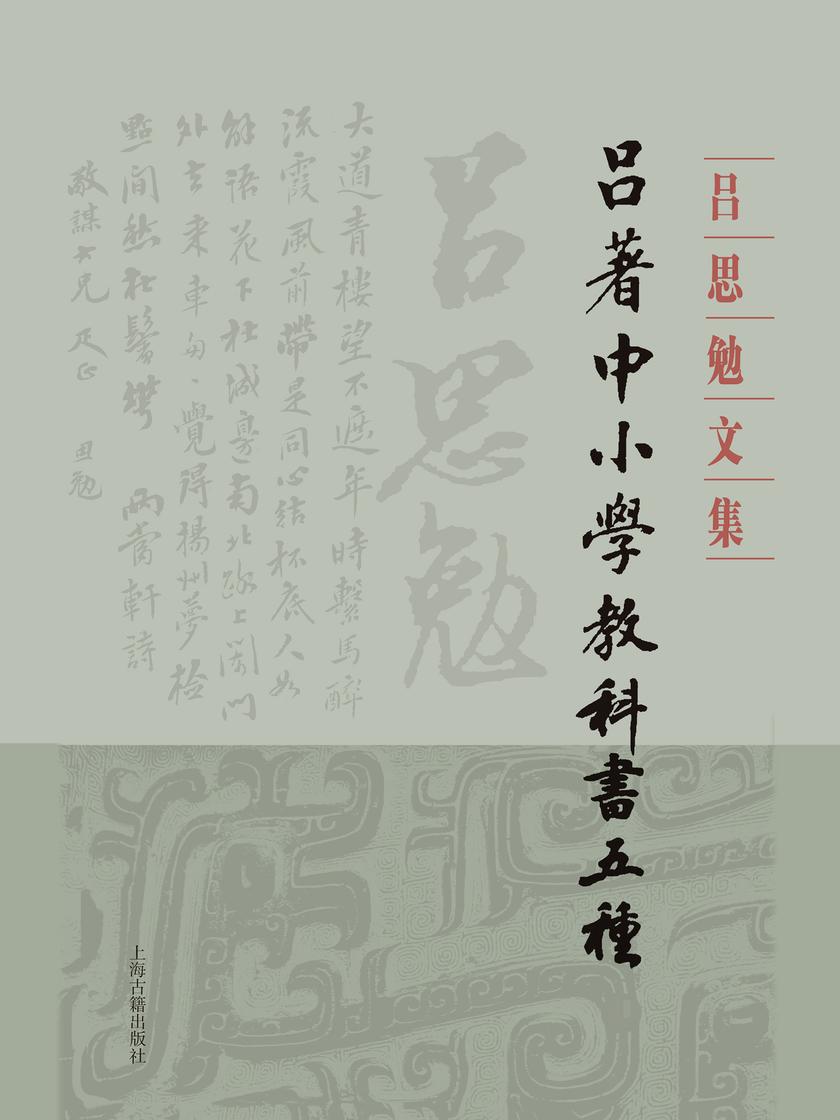 吕思勉文集
吕著中小學教科書五種
吕思勉
大道青樓望不遮年時繫馬醉
流霞風前帶是同心結杯底人如
解語花下杜城邊南北路上闌門
外去來車匆、覺得揚州夢檢
點閒愁在鬢華 兩當軒詩
敬謀大兄疋正 思勉
上海古籍出版社